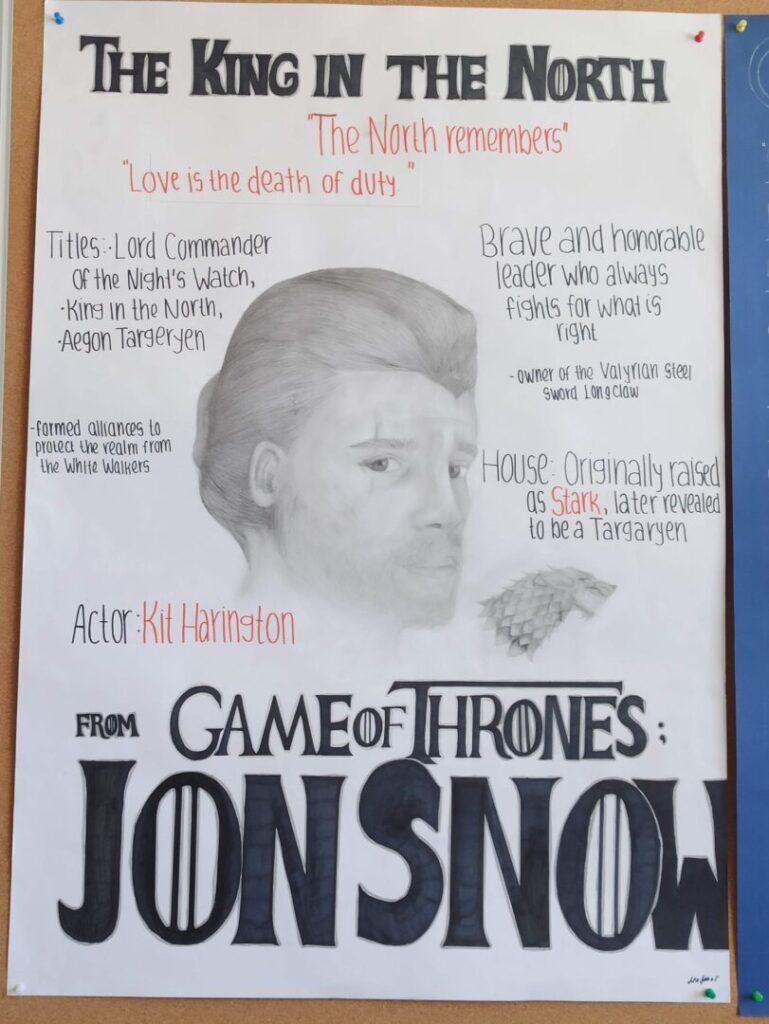 THE KING IN THE NORTH
"The North remembers"
"Love is the death of duty"
Titles: · Lord Commander
Of the Night's Watch,
· King in the North,
· Aegon Targeryen
Brave and honorable
leader who always
fights for what is
right
- owner of the Valyrian Steel
Sword Longclaw
- formed alliances to
protect the realm from
the White Walkers
HOUSE: Originally raised
as Stark, later revealed
to be a Targaryen
Actor: Kit Harington
FROM GAME OF THRONES;
JON SNOW